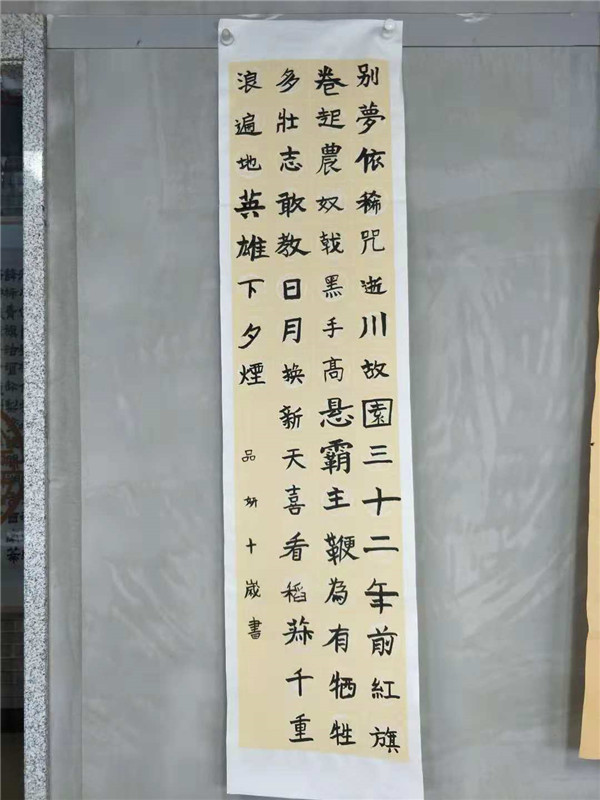 别夢依稀咒逝川故園三十二年前紅旗
卷起農奴戟黑手高悬霸主鞭為有牺牲
多壯志敢教日月换新天喜看稻菽千重
浪遍地英雄下夕煙
品妍十嵗書